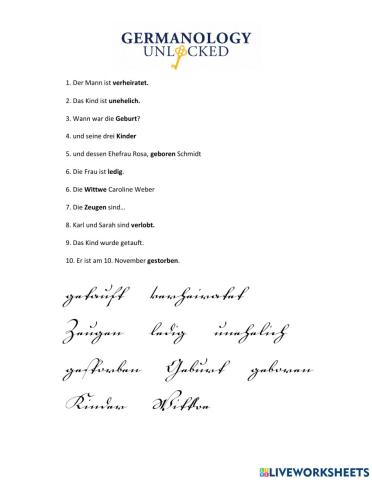 GERMANOLOGY
UNLOCKED
1. Der Mann ist verheiratet.
2. Das Kind ist unehelich.
3. Wann war die Geburt?
4. und seine drei Kinder
5. und dessen Ehefrau Rosa, geboren Schmidt
6. Die Frau ist ledig.
6. Die Wittwe Caroline Weber
7. Die Zeugen sind…
8. Karl und Sarah sind verlobt.
9. Das Kind wurde getauft.
10. Er ist am 10. November gestorben.
getauft verheiratet
Zeugen ledig unehelich
gestorben Geburt geboren
Kinder Wittwe
LIVEWORKSHEETS